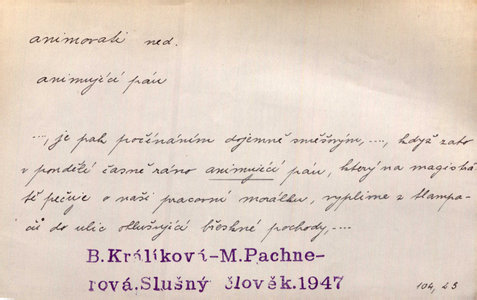 animovati ned.
animující pán
...., je pak počínáním dojemně směšným, ...., když zato
v pondělí časně ráno animující pán, který na magistrá-
tě pečuje o naši pracovní morálku, vyplivne z tlampa-
čů do ulic ohlušující břeskné pochody, ....
B.Králíková-M.Pachne-
rová.Slušný člověk.1947
104, 23